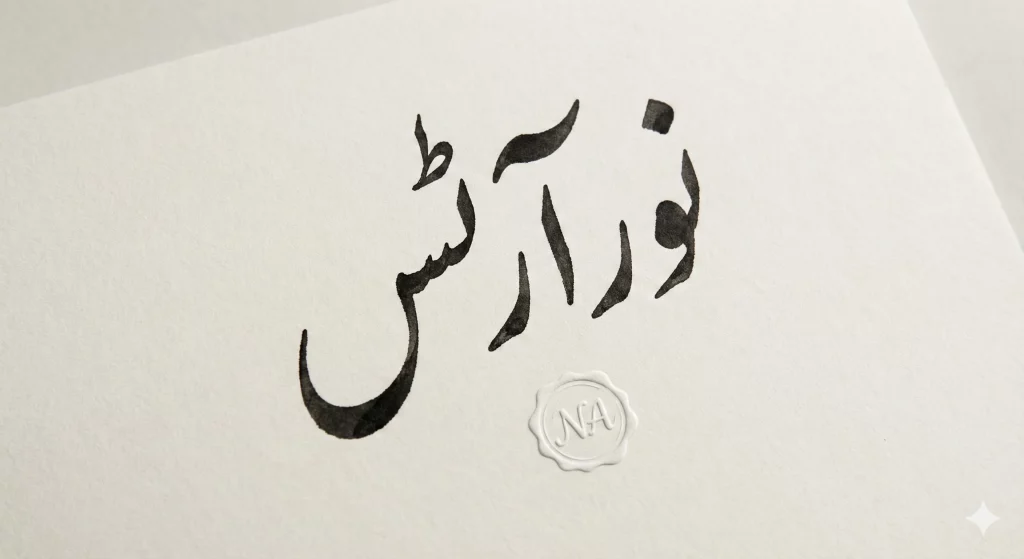 نور آرٹس
NA